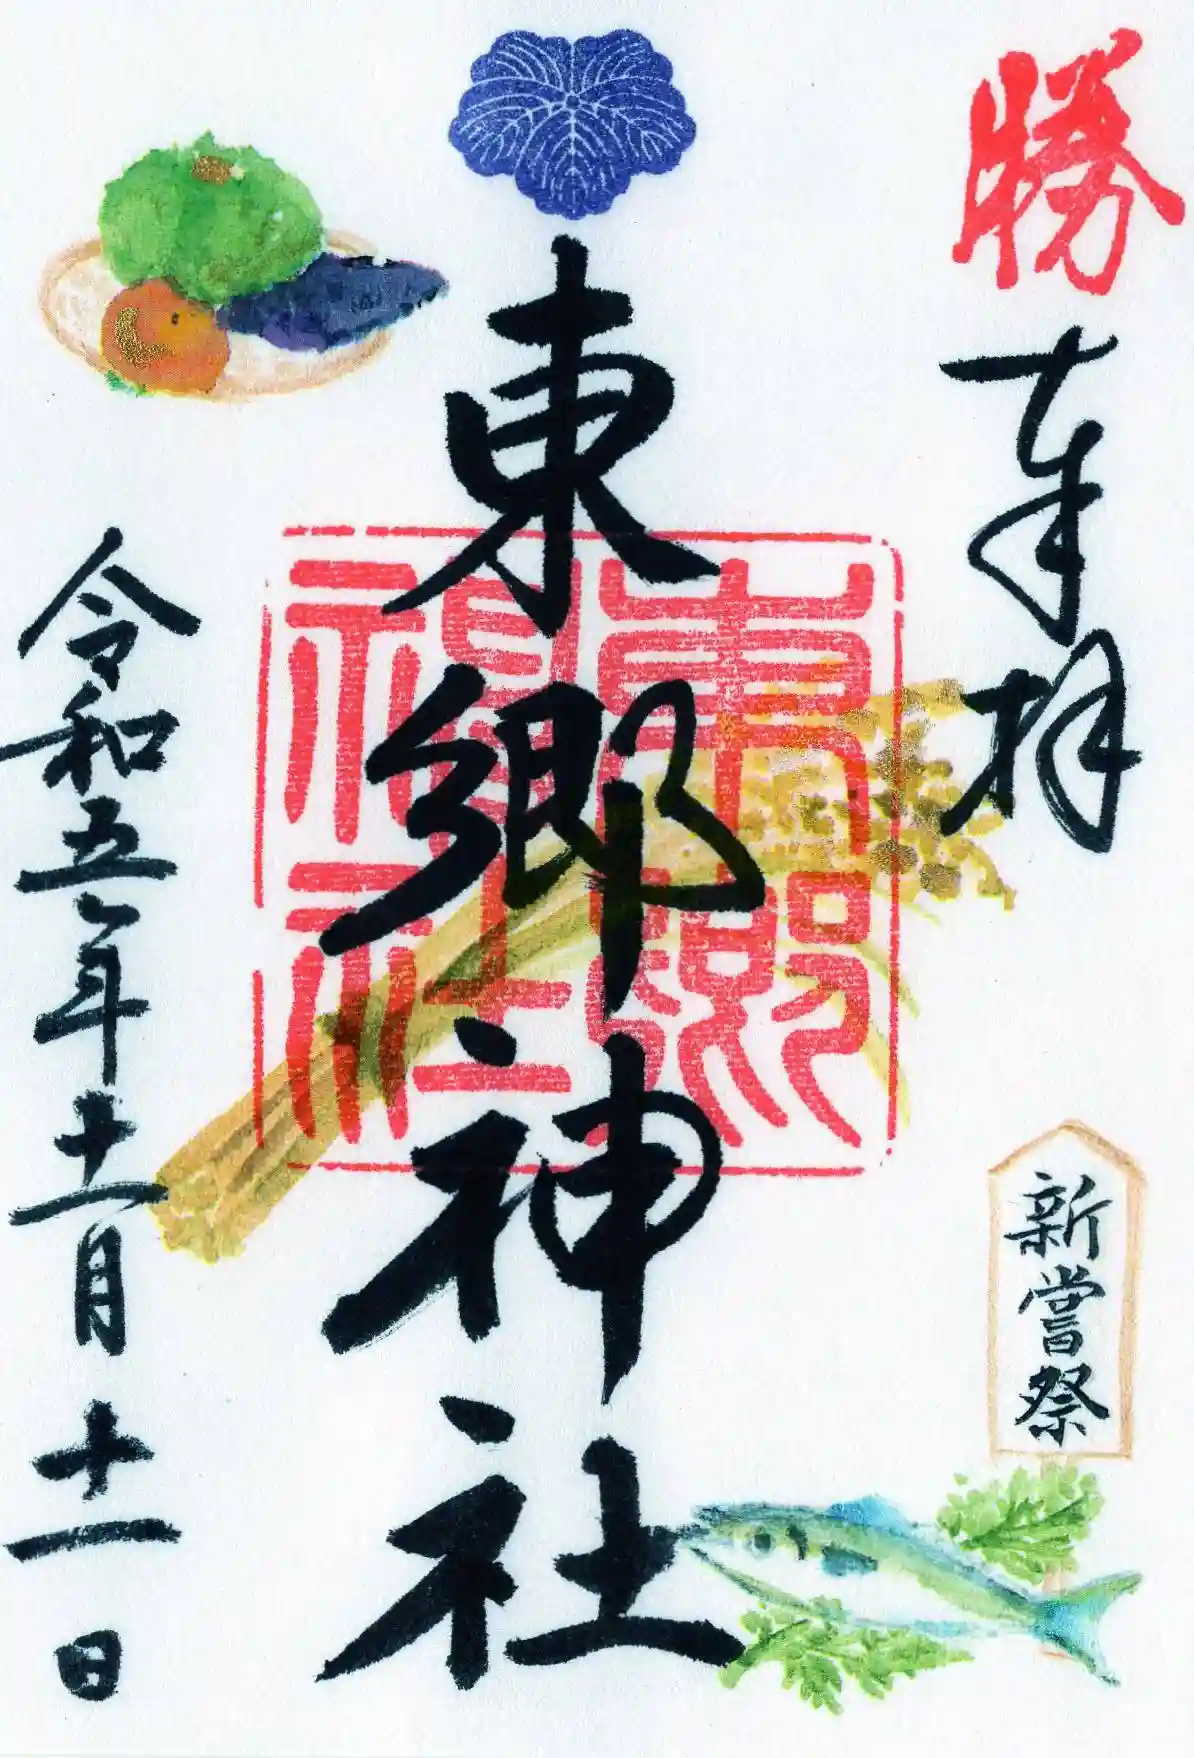 勝
奉拝
新嘗祭
東郷神社
東郷神社
令和五年十一月十一日